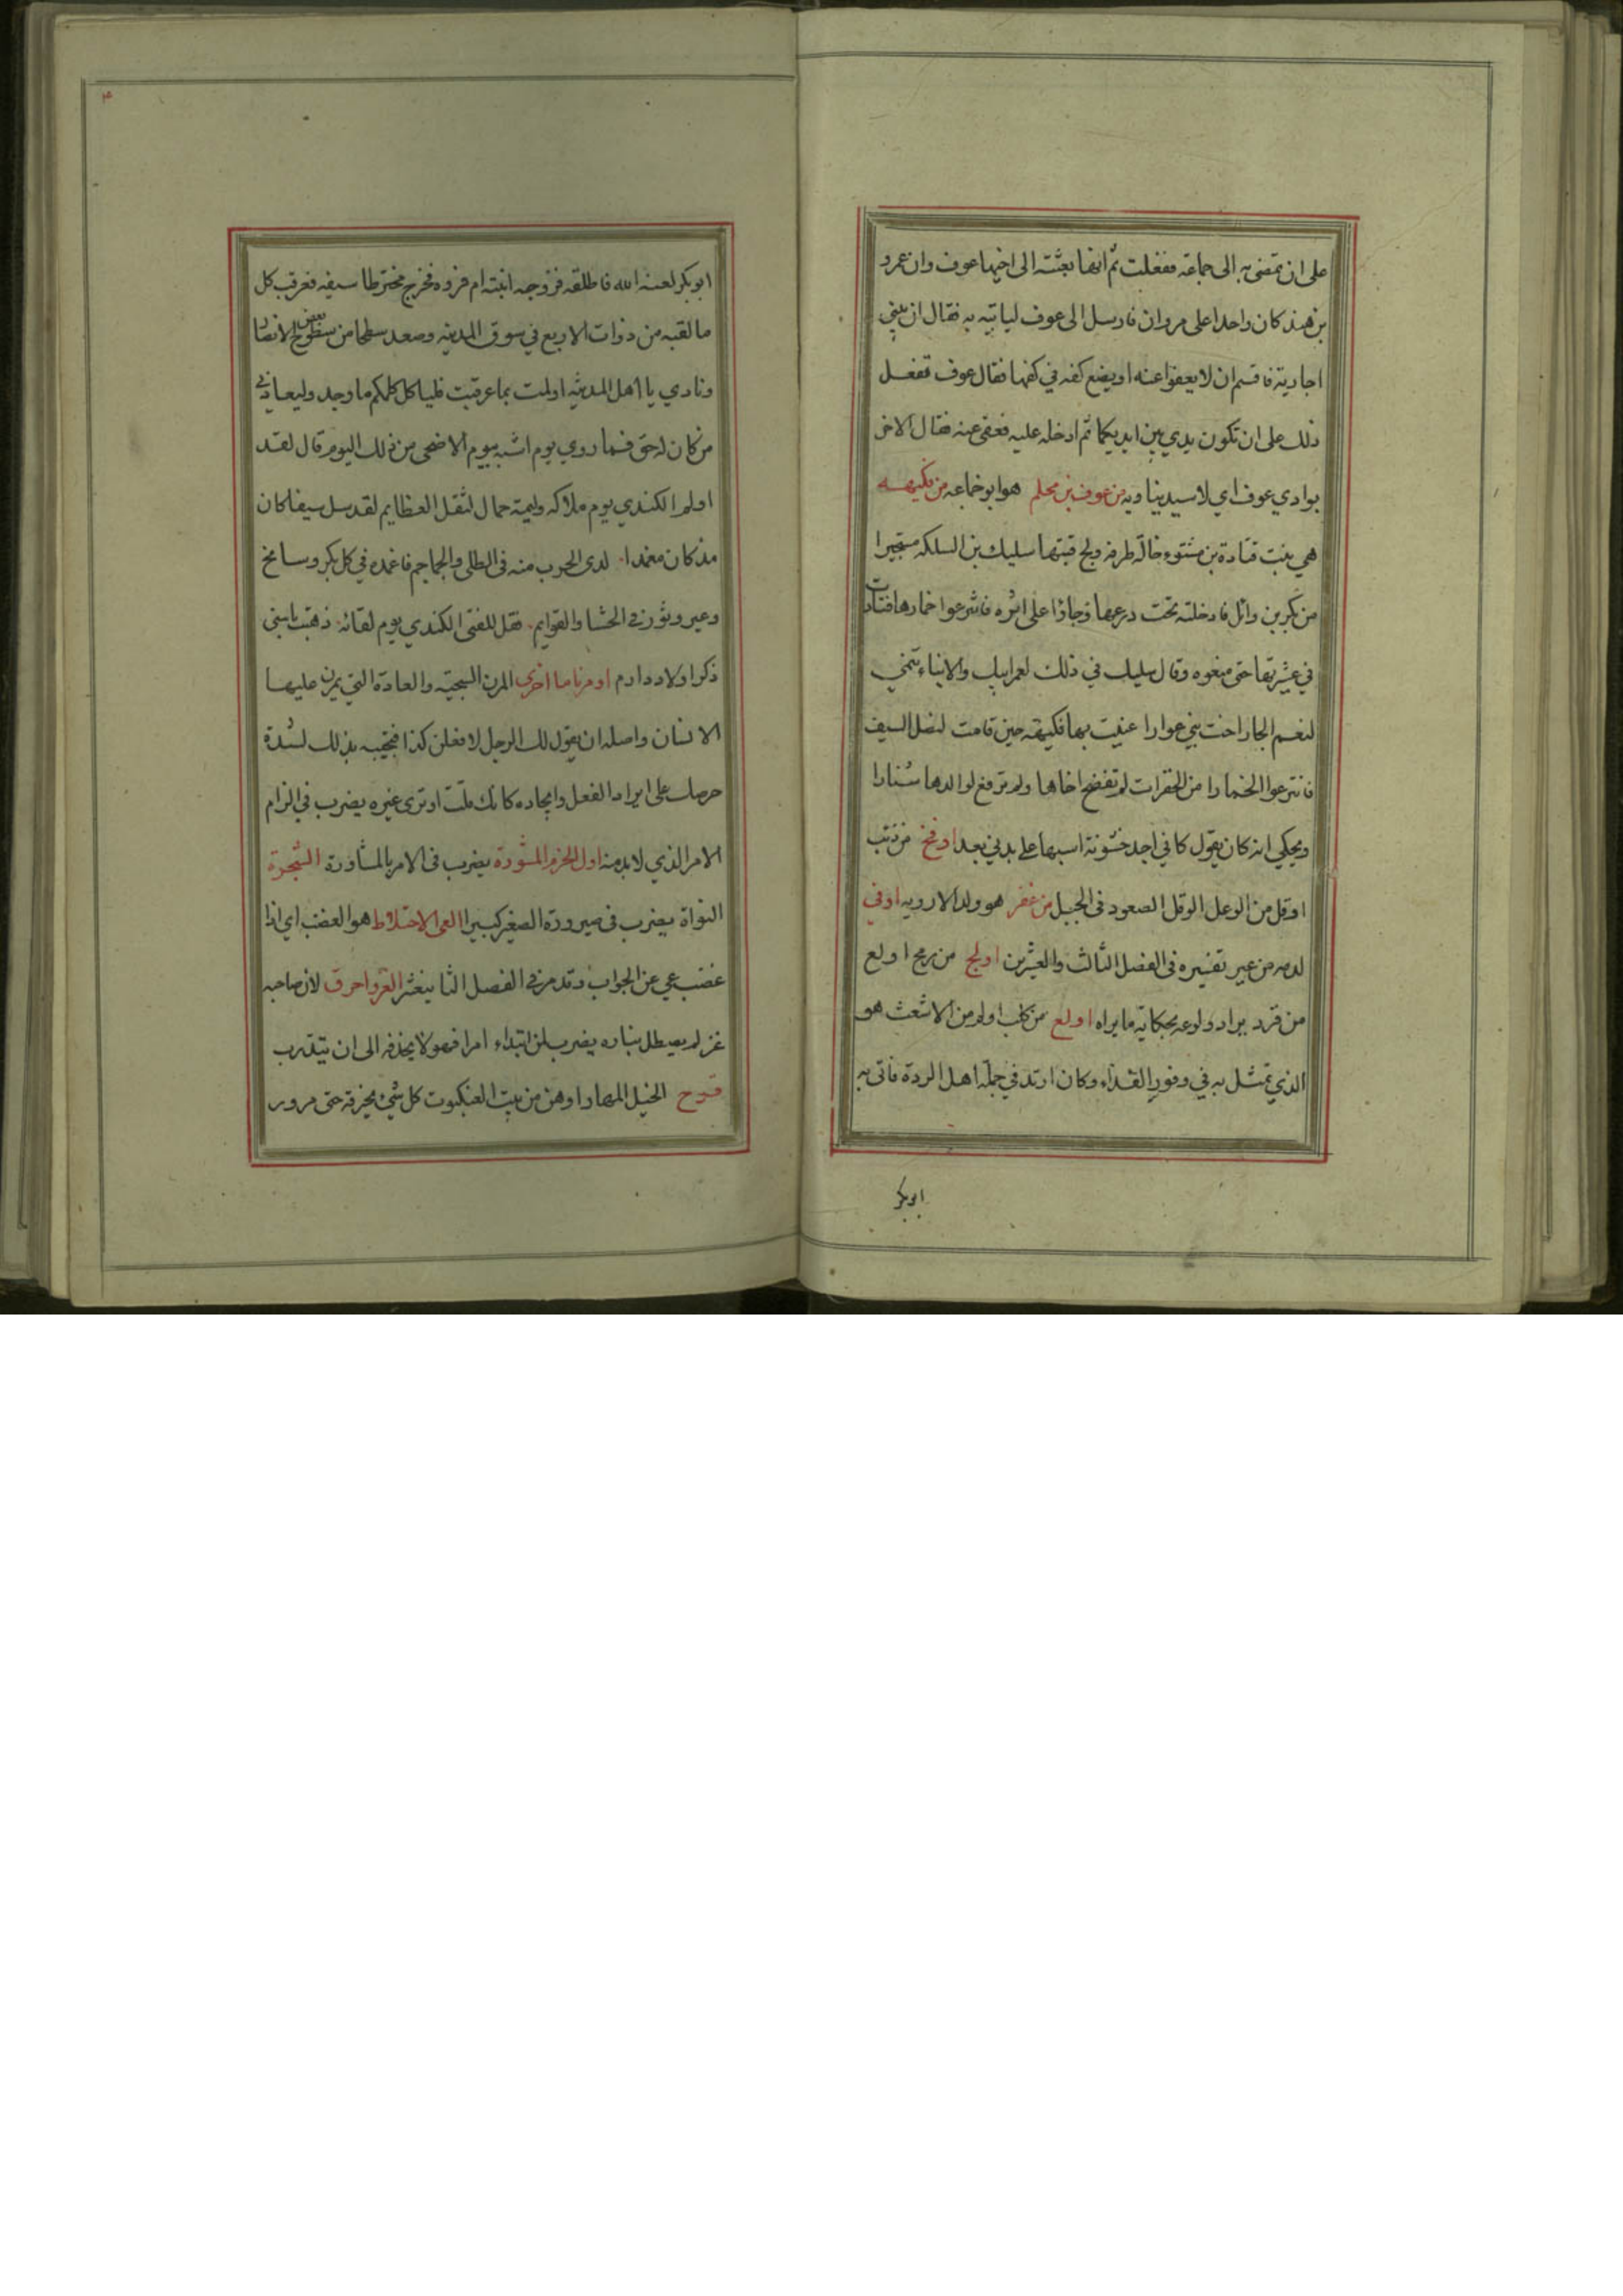 على ان تمضي به الى جماعة ففعلت ثم انها بعثته الى اخيها عوف وان عمرو
بن هند كان واجدا على مروان فارسل الى عوف لياتيه به فقال ان بنتي
اجارته فاقسم ان لا يعفوا عنه او يضع كفه في كفها فقال عوف تفعل
ذلك على ان تكون يدي بين ايديكما ثم ادخله عليه فعفى عنه فقال لاحر
بوادي عوف اي لا سيد يناويه من عوف بن محلم هو ابو خماعه من فكيهه
هي بنت قتادة بن مشنوء خالة طرفه ولج قبتها سليك بن السلكه مستجيرا
من بكر بن وائل فادخلته تحت درعها وجاؤا على اثره فانترعوا خمارها فنادت
في عشيرتها حتى منعوه وقال سليك في ذلك لعمر ابيك والانباء تنمي
لنعم الجار اخت بني عوارا عنيت بها فكيهة حين قامت لنصل السيف
فانترعوا الخمارا من الخفرات لم تفضح اخاها ولم ترفع لوالدها شنارا
ويحكي انه كان يقول كاني اجد خشونة اسبها على بدني بعد اوقح من ذئب
اوقل من الوعل الوقل الصعود في الجبل من غفر هو ولد الارويه اوفي
لدمه من عير تفسيره في الفصل الثالث والعشرين اولج من ريح اولع
من قرد يراد ولوعه بحكاية ما يراه اولع من كلب اولم من الاشعث هو
الذي تمثل به في وفور القذاء وكان ارتد في جملة اهل الردة فاتى به
ابو بكر
٣
ابو بكر لعنه الله فاطلقه فزوجه ابنته ام فروه فخرج مخترطا سيفه فعرقب كل
ما لقيه من ذوات الاربع في سوق المدينه وصعد سطحا من سطوح بعض الانصار
ونادي يا اهل المدينه اولمت بما عرقبت فلياكل كلكم ما وجد وليعاذني
من كان له حق فما روي يوم اشبه بيوم الاضحى من ذلك اليوم قال لقد
اولم الكندي يوم ملاكه وليمة حمال لثقل العظايم لقد سل سيفا كان
مذ كان مغمدا لدى الحرب منه في الطلى والجماجم فاغمده في كل بكر وسابح
وعير وثور في الحشا والقوايم فقل للفتى الكندي يوم لقائه ذهبت باسني
ذكر اولاد دارم او مرنا ما اخرى المرن السجية والعادة التي يمرن عليها
الانسان واصله ان يقول لك الرجل لافعلن كذا فتجيبه بذلك لشدة
حرصك على ايراد الفعل وايجاده كانك قلت او ترى غيره يضرب في الزام
الامر الذي لا بد منه اول الحزم المشورة يضرب في الامر بالمشاورة الشجرة
النواة يضرب في صيرورة الصغير كبيرا العي الاختلاط هو الغضب اي اذا
غضب عي عن الجواب وقد مر في الفصل الثاني عشر الغزو احرق لان صاحبه
غر لم يصطل بناره يضرب لمن ابتداء امرا فهو لا يحذفه الى ان يتدرب
قروح الخيل المهارا وهن من بيت العنكبوت كل شي يخرقه حتى مرور